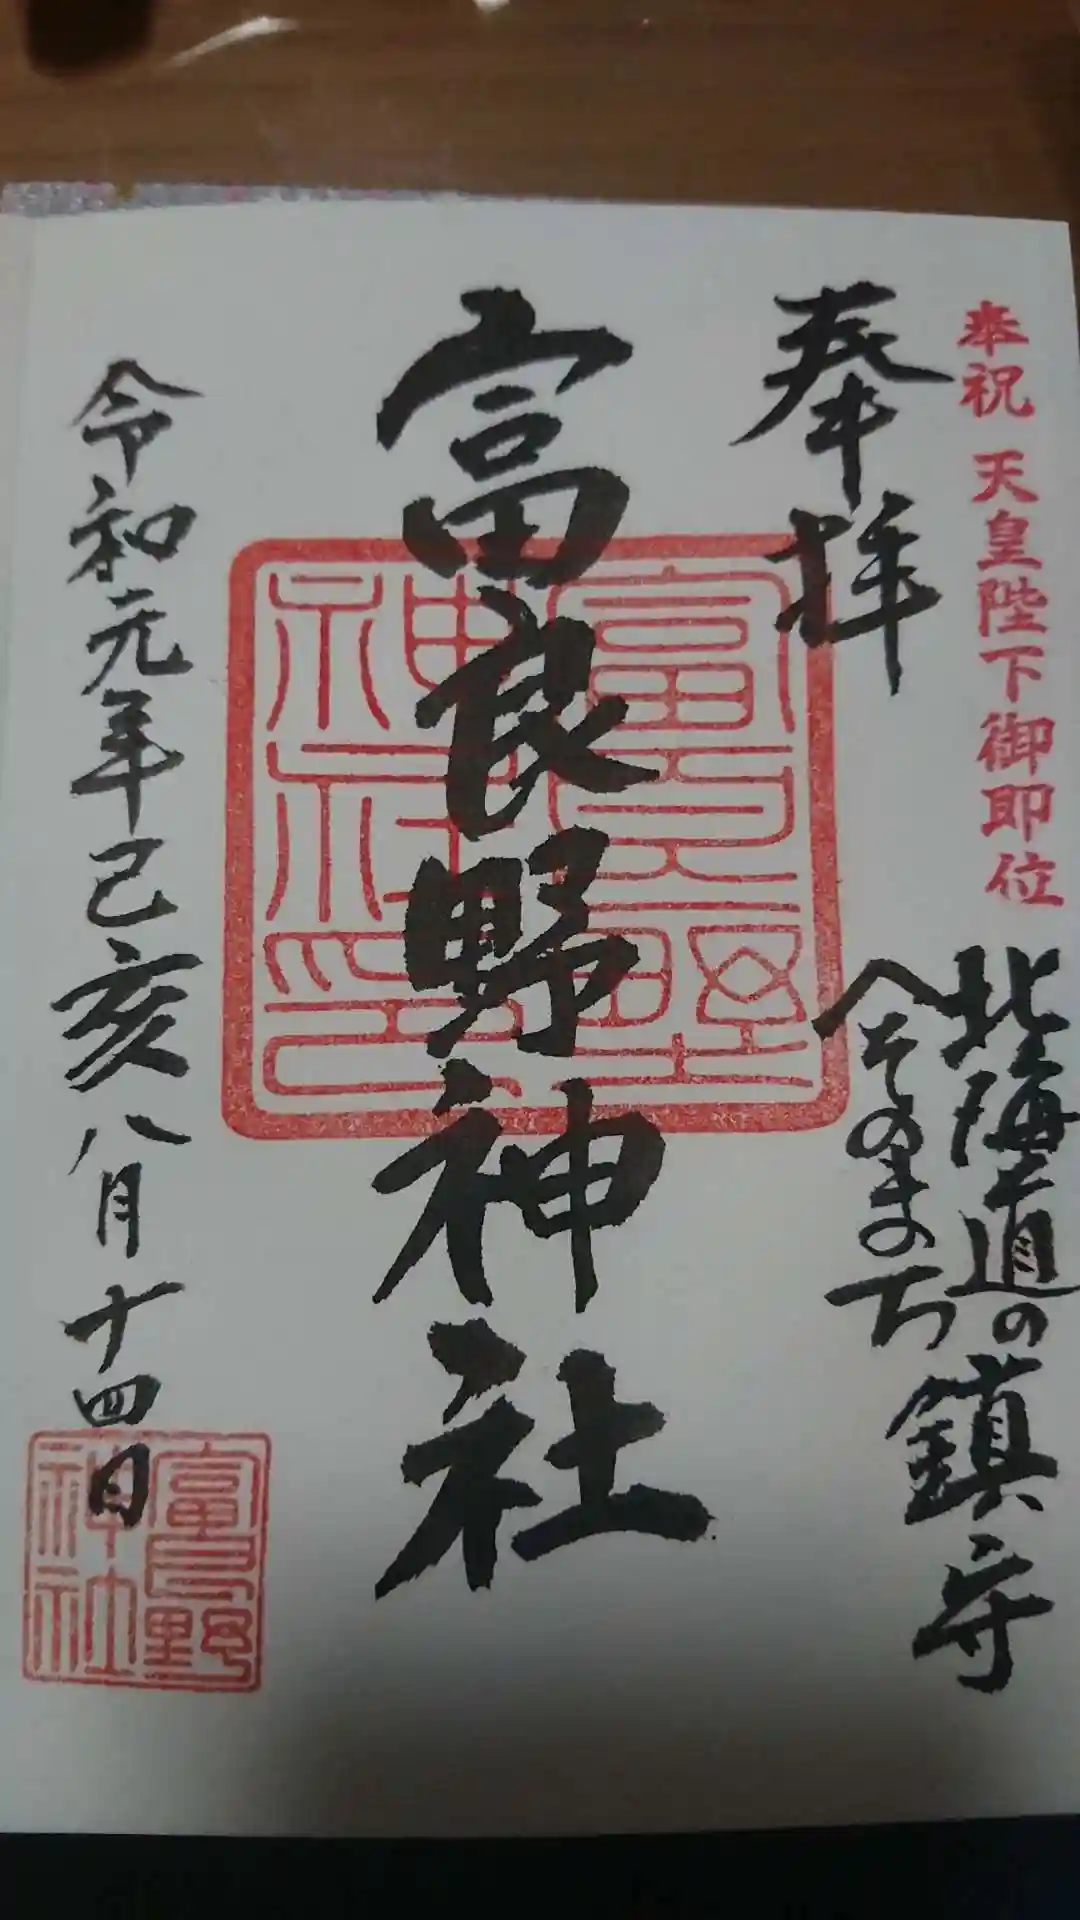 奉祝 天皇陛下御即位
北海道の鎮守
へそのまち
奉拝
富良野神社
富良野神社印
令和元年己亥八月十四日
富良野神社